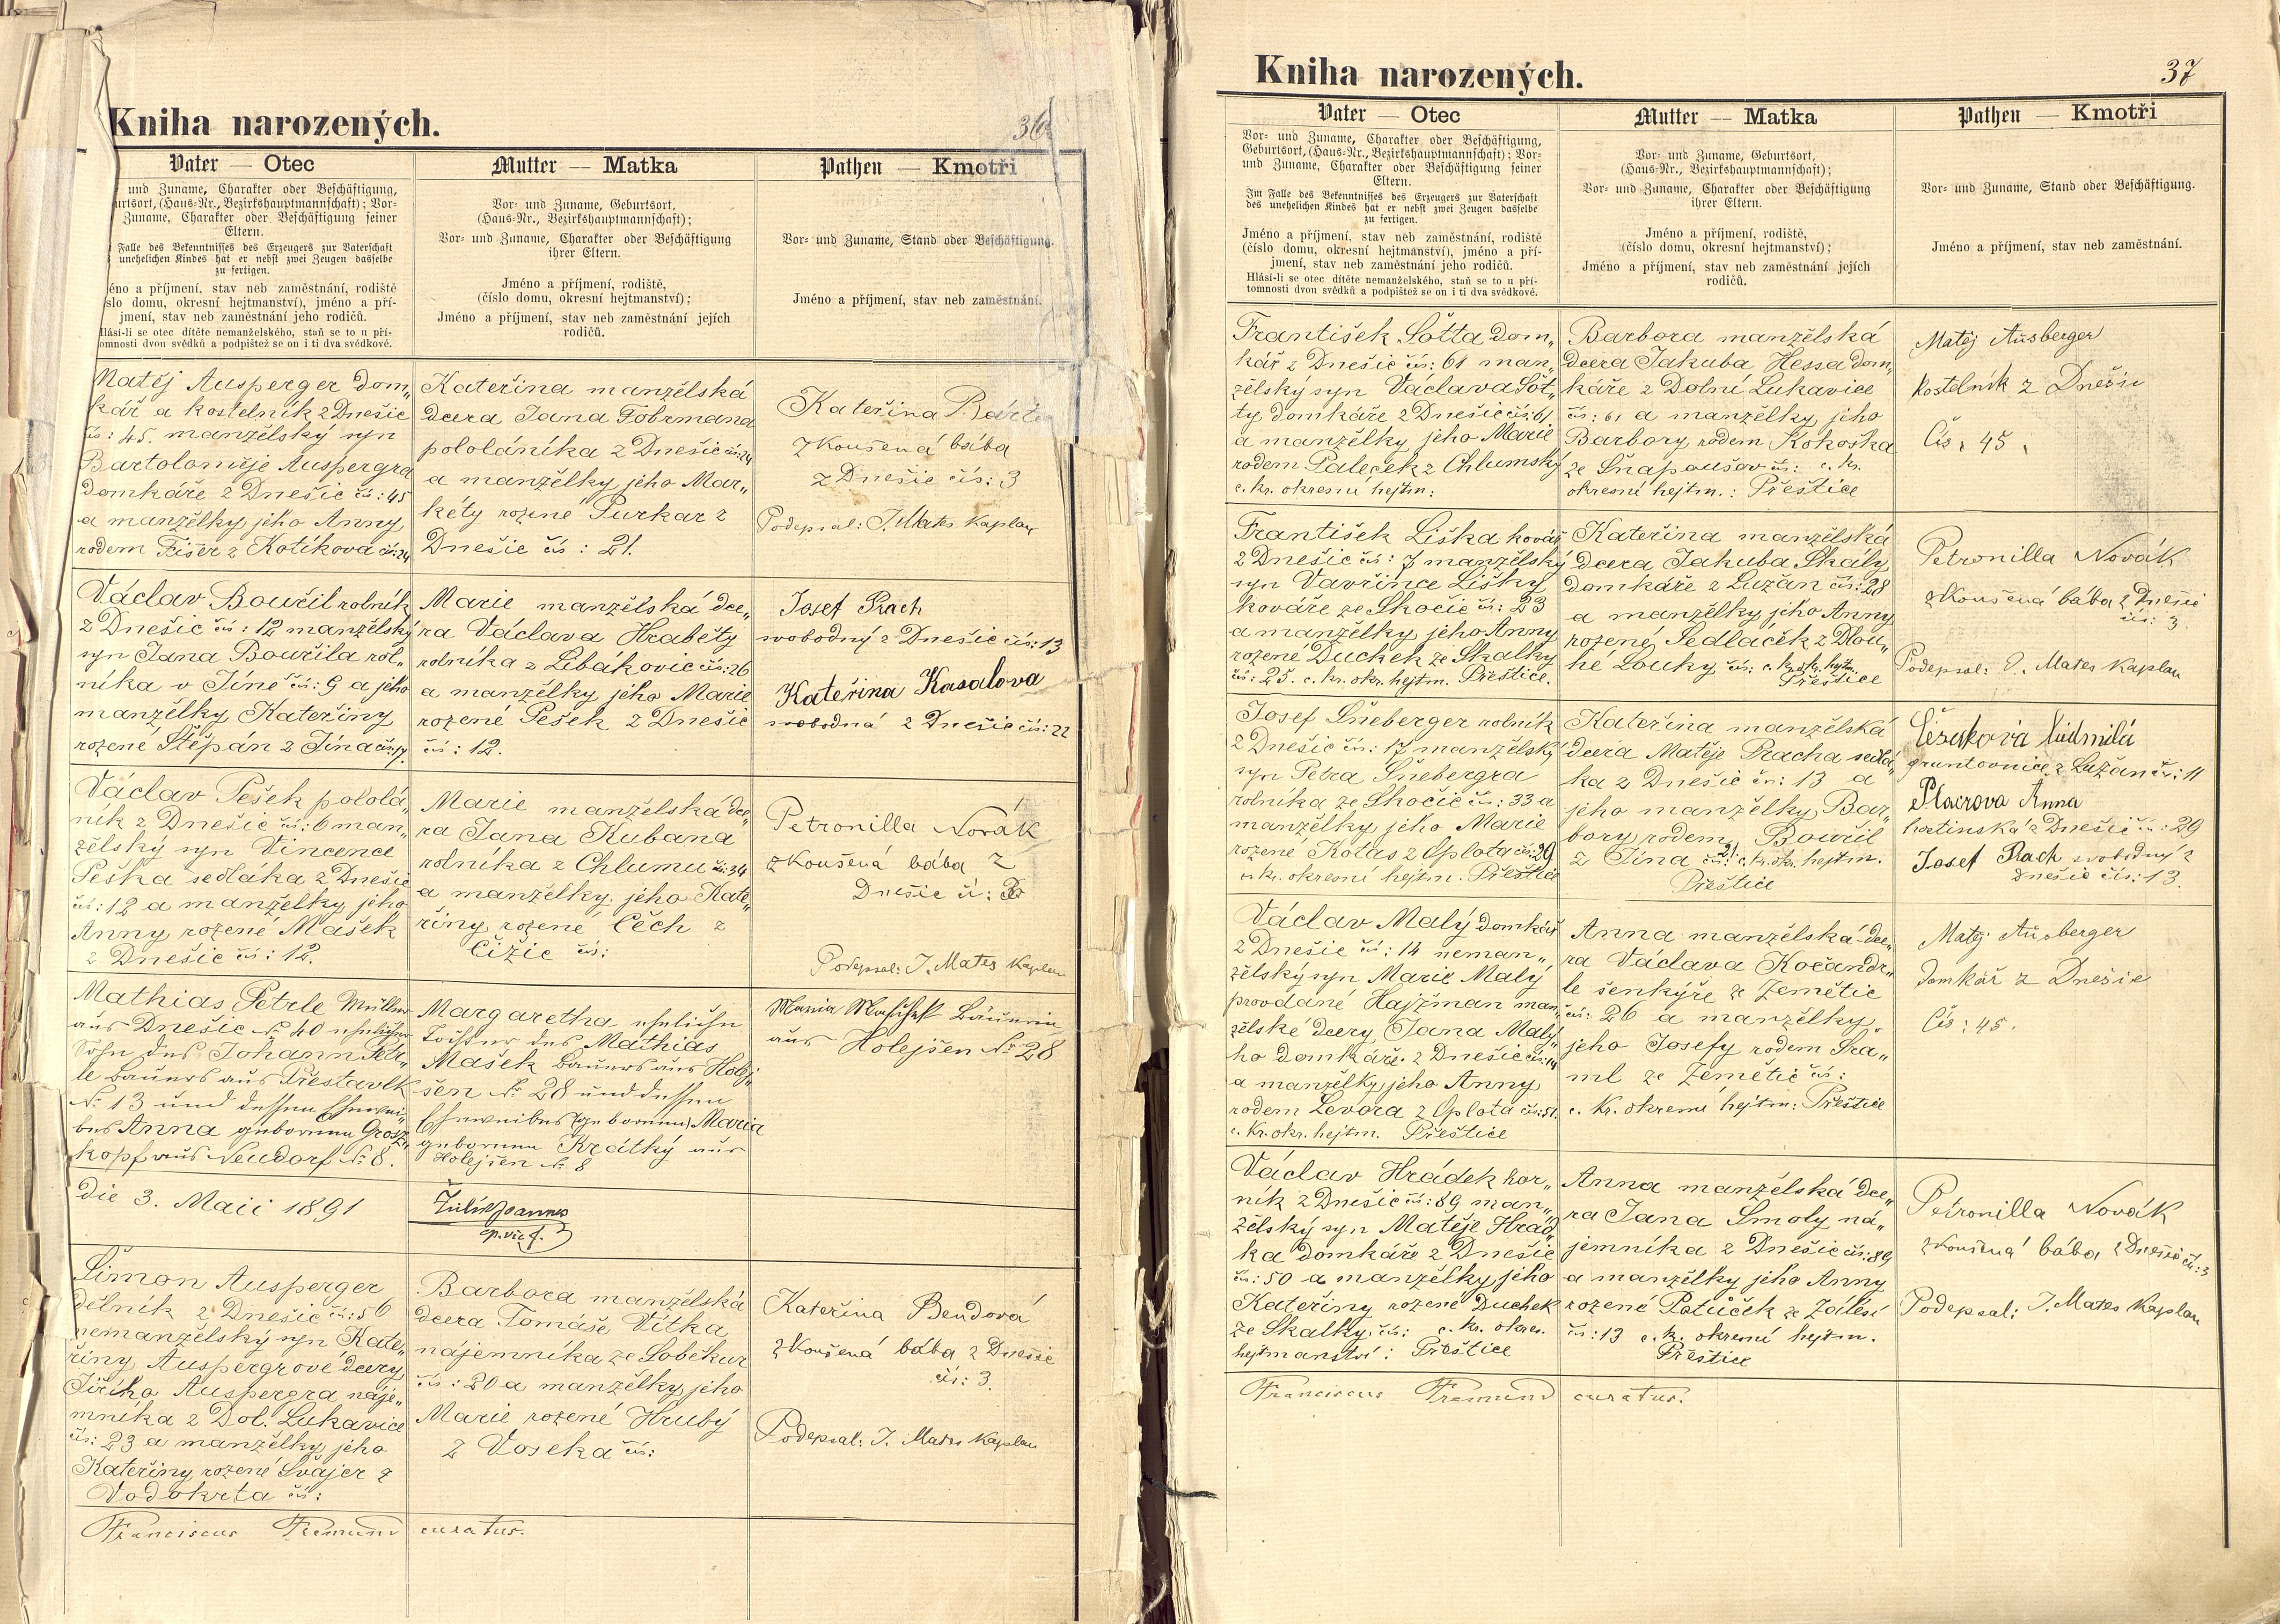 Kniha narozených.
36
Vater — Otec
und Zuname, Charakter oder Beschäftigung,
urtsort, (Haus-Nr., Bezirkshauptmannschaft); Vor-
Zuname, Charakter oder Beschäftigung seiner
Eltern.
Falle des Bekenntnisses des Erzeugers zur Vaterschaft
unehelichen Kindes hat er nebst zwei Zeugen dasselbe
zu fertigen.
éno a příjmení, stav neb zaměstnání, rodiště
slo domu, okresní hejtmanství), jméno a pří-
jmení, stav neb zaměstnání jeho rodičů.
lásí-li se otec dítěte nemanželského, staň se to u pří-
omnosti dvou svědků a podpištež se on i ti dva svědkové.
Mutter — Matka
Vor- und Zuname, Geburtsort,
(Haus-Nr., Bezirkshauptmannschaft);
Vor- und Zuname, Charakter oder Beschäftigung
ihrer Eltern.
Jméno a příjmení, rodiště,
(číslo domu, okresní hejtmanství);
Jméno a příjmení, stav neb zaměstnání jejích
rodičů.
Pathen — Kmotři
Vor- und Zuname, Stand oder Beschäftigung.
Jméno a příjmení, stav neb zaměstnání.
Matěj Ausperger dom„
kář a kostelník z Dnešic
čís: 45. manželský syn
Bartoloměje Auspergra
domkáře z Dnešic čís: 45
a manželky jeho Anny
rodem Fišer z Kotíkova čís: 24
Kateřina manželská
dcera Jana Fobrmana
pololáníka z Dnešic čís: 24
a manželky jeho Mar„
kéty rozené Purkar z
Dnešic čís: 21.
Kateřina
zkoušená bába
z Dnešic čís: 3
Podepsal: J. Mates kaplan
Václav Bouřil rolník
z Dnešic čís: 12 manželský
syn Jana Bouřila rol„
níka v Jíně čís: 9 a jeho
manželky Kateřiny
rozené Štěpán z Jína čís: 17.
Marie manželská dce„
ra Václava Hraběty
rolníka z Libákovic čís: 26
a manželky jeho Marie
rozené Pešek z Dnešic
čís: 12.
Josef Prach
svobodný z Dnešic čís: 13
Kateřina Kasalova
svobodná z Dnešic čís: 22
Václav Pešek pololá„
ník z Dnešic čís: 6 man„
želský syn Vincence
Peška sedláka z Dnešic
čís: 12 a manželky jeho
Anny rozené Mašek
z Dnešic čís: 12.
Marie manželská dce„
ra Jana Kubana
rolníka z Chlumu čís: 34
a manželky jeho Kate„
řiny rozené Čech z
Čižic čís:
Petronilla Novák
zkoušená bába z
Dnešic čí: 3
Podepsal: J. Mates kaplan
Mathias Petrle Müller
aus Dnešic № 40 ehelicher
Sohn des Johann Petr„
le Bauers aus Přestavlk
№ 13 und dessen Ehewei„
bes Anna geborenen Grosz„
kopf aus Neudorf № 8.
Margaretha eheliche
Tochter des Mathias
Mašek Bauers aus Holej„
šen № 28 und dessen
Eheweibes (geborenen) Maria
geborenen Krátký aus
Holejšen № 8
Maria Bäuerin
aus Holejšen № 28
Die 3. Maii 1891
Žulík Joannes
ep. vic. f.
Šimon Ausperger
dělník z Dnešic čís: 56
nemanželský syn Kate„
řiny Auspergrové dcery
Jiřího Auspergra náje„
mníka z Dol. Lukavice
čís: 23 a manželky jeho
Kateřiny rozené Švajer z
Vodokrta čís:
Barbora manželská
dcera Tomáše Vítka
nájemníka ze Soběkur
čís: 20 a manželky jeho
Marie rozené Hrubý
z Voseka čís:
Kateřina Bendová
zkoušená bába z Dnešic
čís: 3.
Podepsal: J. Mates kaplan
Franciscus Fremund curatus.
Kniha narozených.
37
Vater — Otec
Vor- und Zuname, Charakter oder Beschäftigung,
Geburtsort, (Haus-Nr., Bezirkshauptmannschaft); Vor-
und Zuname, Charakter oder Beschäftigung seiner
Eltern.
Im Falle des Bekenntnisses des Erzeugers zur Vaterschaft
des unehelichen Kindes hat er nebst zwei Zeugen dasselbe
zu fertigen.
Jméno a příjmení, stav neb zaměstnání, rodiště
(číslo domu, okresní hejtmanství), jméno a pří-
jmení, stav neb zaměstnání jeho rodičů.
Hlásí-li se otec dítěte nemanželského, staň se to u pří-
tomnosti dvou svědků a podpištež se on i ti dva svědkové.
Mutter — Matka
Vor- und Zuname, Geburtsort,
(Haus-Nr., Bezirkshauptmannschaft);
Vor- und Zuname, Charakter oder Beschäftigung
ihrer Eltern.
Jméno a příjmení, rodiště,
(číslo domu, okresní hejtmanství);
Jméno a příjmení, stav neb zaměstnání jejích
rodičů.
Pathen — Kmotři
Vor- und Zuname, Stand oder Beschäftigung.
Jméno a příjmení, stav neb zaměstnání.
František Šotta dom„
kář z Dnešic čís: 61 man„
želský syn Václava Šot„
ty domkáře z Dnešic čís: 61
a manželky jeho Marie
rodem Paleček z Chlumský
c. kr. okresní hejtm:
Barbora manželská
dcera Jakuba Hessa dom„
káře z Dolní Lukavice
čís: 61 a manželky jeho
Barbory rodem Kokoška
ze Šnapoušov čís: c. kr.
okresní hejtm.: Přeštice
Matěj Ausberger
kostelník z Dnešic
Čís: 45.
František Liška kovář
z Dnešic čís: 7 manželský
syn Vavřince Lišky
kováře ze Skočic čís: 23
a manželky jeho Anny
rozené Duchek ze Skalky
čís: 25. c. kr. okr. hejtm. Přeštice.
Kateřina manželská
dcera Jakuba Skály
domkáře z Lužan čís: 28
a manželky jeho Anny
rozené Sedlaček z Dlou„
hé Louky čís: c. kr. okr. hejtm.
Přeštice
Petronilla Novák
zkoušená bába z Dnešic
čís: 3.
Podepsal: J. Mates kaplan
Josef Šneberger rolník
z Dnešic čís: 17 manželský
syn Petra Šnebergra
rolníka ze Skočic čís: 33 a
manželky jeho Marie
rozené Kotas z Oplota čís: 29
c. kr. okresní hejtm. Přeštice
Kateřina manželská
dcera Matěje Pracha sedlá„
ka z Dnešic čís: 13 a
jeho manželky Bar„
bory rodem Bouřil
z Jína čís: 21 c. k. okr. hejtm.
Přeštice
Ludmila
gruntovnice z Lužan čís: 11
Anna
hostinská z Dnešic čís: 29
Josef Prach svobodný z
Dnešic čís: 13.
Václav Malý domkář
z Dnešic čís: 14 neman„
želský syn Marie Malý
provdané Hajžman man„
želské dcery Jana Malý„
ho domkáře z Dnešic čís: 14
a manželky jeho Anny
rodem Levora z Oplota čís: 51.
c. kr. okr. hejtm. Přeštice
Anna manželská dce„
ra Václava Kočandr„
le šenkýře ze Zemětic
čís: 26 a manželky
jeho Josefy rodem Sra„
ml ze Zemětic čís:
c. kr. okresní hejtm: Přeštice
Matěj Ausberger
domkář z Dnešic
Čís: 45.
Václav Hrádek hor„
ník z Dnešic čís: 89 man„
želský syn Matěje Hrád„
ka domkáře z Dnešic
čís: 50 a manželky jeho
Kateřiny rozené Duchek
ze Skalky čís: c. kr. okres.
hejtmanství: Přeštice
Anna manželská dce„
ra Jana Smoly ná„
jemníka z Dnešic čís: 89
a manželky jeho Anny
rozené Potůček ze Zálesí
čís: 13 c. k. okresní hejtm.
Přeštice
Petronilla Novák
zkoušená bába z Dnešic čís: 3
Podepsal: J. Mates kaplan
Franciscus Fremund curatus.